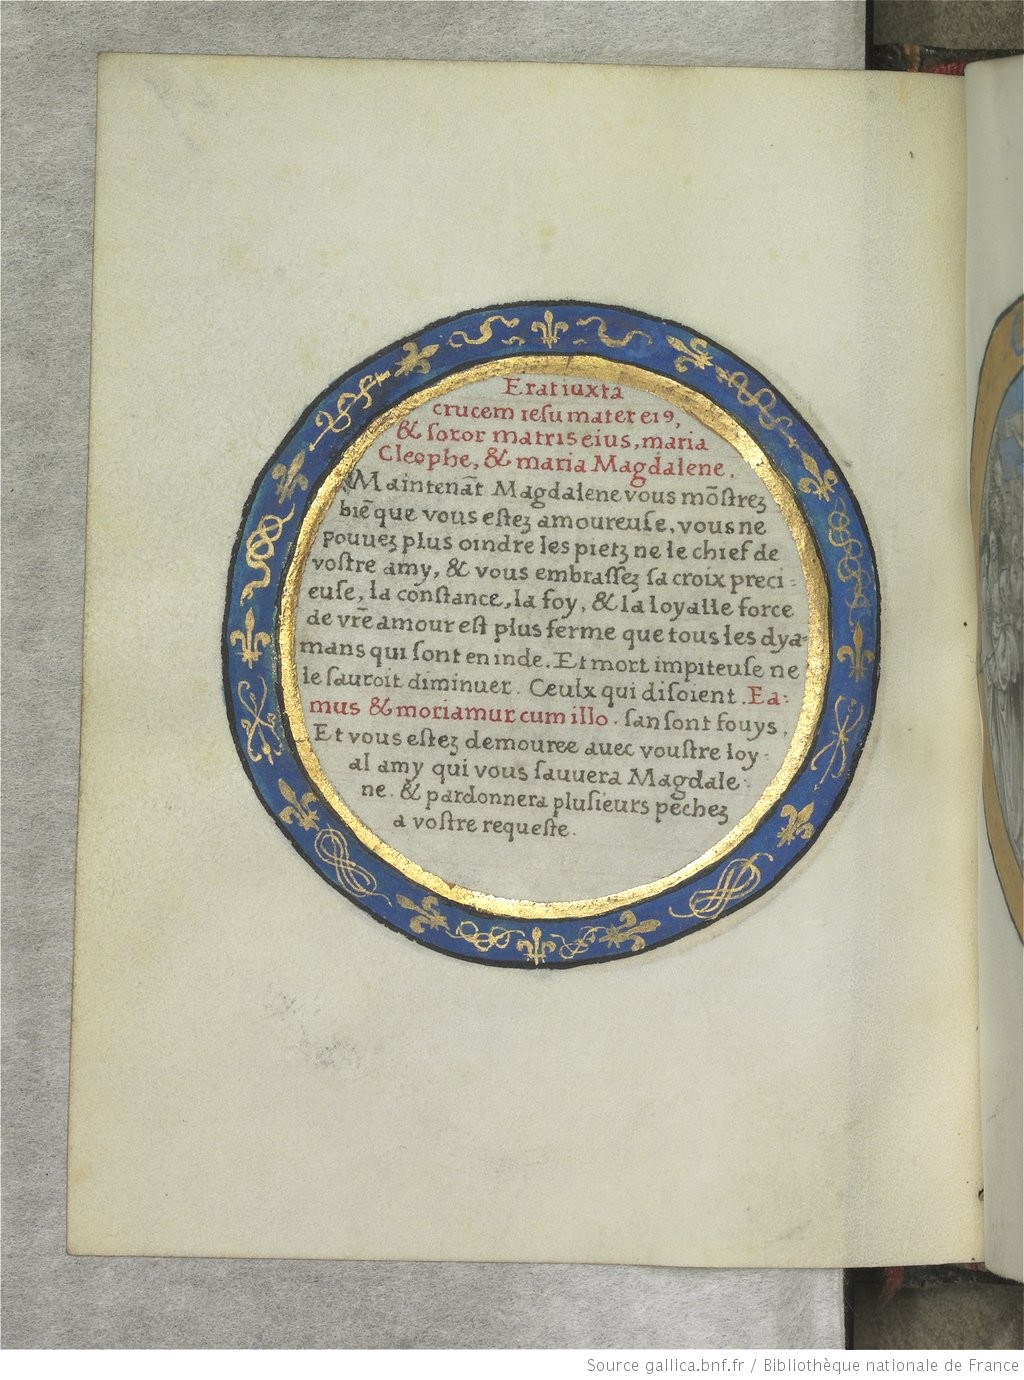 Erat iuxta
crucem iesu mater eiꝰ,
& soror matris eius, maria
Cleophe, & maria Magdalene.
Maintenāt Magdalene vous mōstrez
biē que vous estez amoureuse, vous ne
pouuez plus oindre les pietz ne le chief de
vostre amy, & vous embrassez sa croix preci=
euse, la constance, la foy, & la loyalle force
de vr̄e amour est plus ferme que tous les dya=
mans qui sont en inde. Et mort impiteuse ne
le sauroit diminuer. Ceulx qui disoient. Ea=
mus & moriamur cum illo. san sont fouys.
Et vous estez demouree auec voustre loy=
al amy qui vous sauuera Magdale=
ne. & pardonnera plusieurs pechez
a vostre requeste.
Source gallica.bnf.fr / Bibliothèque nationale de France